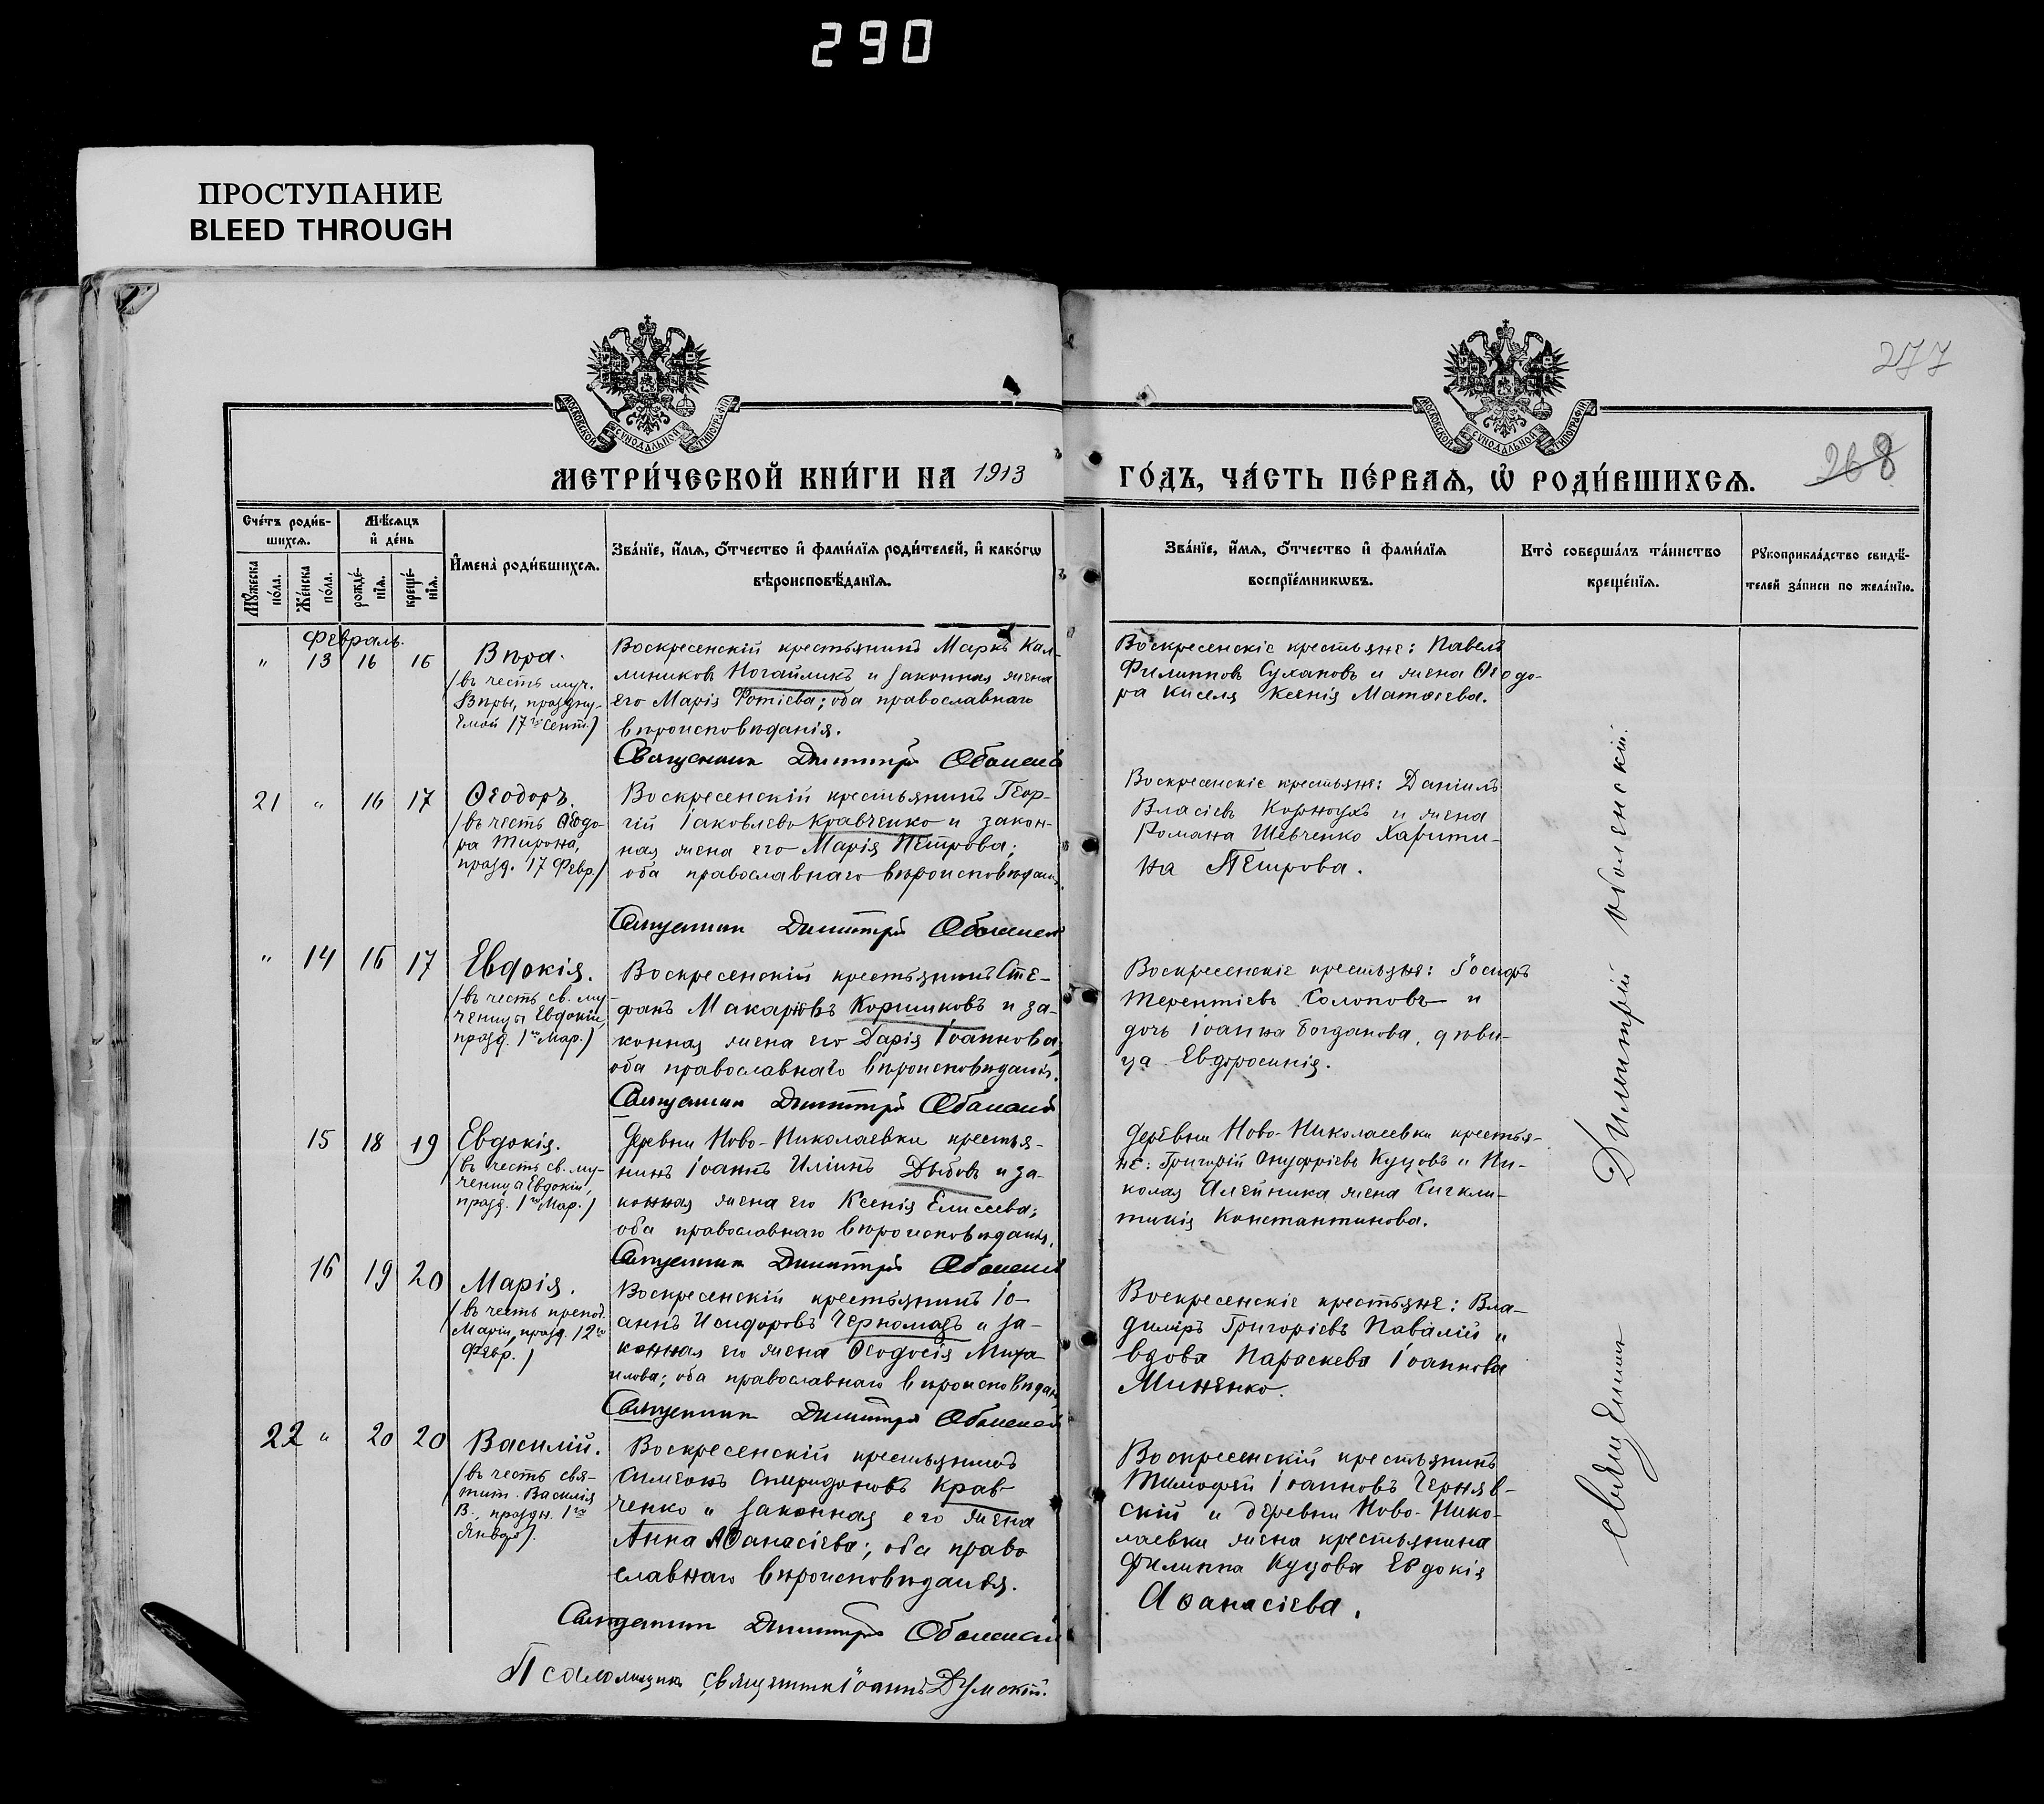 290
ПРОСТУПАНИЕ
BLEED THROUGH
277
МОСКОВСКОЙ СѴНОДАЛЬНОЙ ТИПОГРАФІИ
МОСКОВСКОЙ СѴНОДАЛЬНОЙ ТИПОГРАФІИ
268
МЕТРИ́ЧЕСКОЙ КНИ́ГИ НА 1913 ГО́ДЪ, ЧА́СТЬ ПЕ́РВАѦ, Ѡ҆ РОДИ́ВШИХСѦ.
Сче́тъ роди́в-
шихсѧ.
Мѣ́сѧцъ
и҆ де́нь
Мꙋ́жеска
по́ла.
Же́нска
по́ла.
рожде́-
нїѧ.
креще́-
нїѧ.
И҆мена̀ роди́вшихсѧ.
Зва́нїе, и҆́мѧ, ѻ҆́тчество и҆ фами́лїѧ роди́телей, и҆ како́гѡ
вѣроисповѣ́данїѧ.
Зва́нїе, и҆́мѧ, ѻ҆́тчество и҆ фами́лїѧ
воспрїе́мникѡвъ.
Кто̀ соверша́лъ та́инство
креще́нїѧ.
Рꙋкоприкла́дство свидѣ́-
телей за́писи по жела́нїю.
Февраль.
" 13 16 16
Вѣра.
(въ честь муч.
Вѣры, празднy-
емой 17го Сент.)
Воскресенскій крестьянинъ Маркъ Кал-
линиковъ Ногайликъ и законная жена
его Марія Фотіева; оба православнаго
вѣроисповѣданія.
Священник Димитрій Оболенскій
Воскресенскіе крестьяне: Павелъ
Филипповъ Сухановъ и жена Ѳеодо-
ра Киселя Ксенія Матѳіева.
21 " 16 17
Ѳеодоръ.
(въ честь Ѳеодо-
ра Тирона,
празд. 17 Февр)
Воскресенскій крестьянинъ Геор-
гій Іаковлевъ Кравченко и закон-
ная жена его Марія Петрова;
оба православнаго вѣроисповѣдан.
Священник Димитрій Оболенскій
Воскресенскіе крестьяне: Даніилъ
Власіевъ и жена
Романа Шевченко Харити-
на Петрова.
" 14 16 17
Евдокія.
(въ честь св. му-
ченицы Евдокіи,
празд. 1го Мар.)
Воскресенскій крестьянинъ Сте-
фанъ Макаріевъ Коршиковъ и за-
конная жена его Дарія Іоаннова;
оба православнаго вѣроисповѣданія.
Священник Димитрій Оболенскій
Воскресенскіе крестьяне: Іосифъ
Терентіевъ Солоповъ и
дочь Іоанна Богданова, дѣви-
ца Евфросинія.
15 18 19
Евдокія.
(въ честь св. му-
ченицы Евдокіи,
празд. 1го Мар.)
Деревни Ново-Николаевки крестья-
нинъ Іоаннъ Иліинъ Дыбовъ и за-
конная жена его Ксенія Елисеева;
оба православнаго вѣроисповѣданія.
Священник Димитрій Оболенскій
Деревни Ново-Николаевки крестья-
не: Григорій Онуфріевъ Куцовъ и Ни-
колая Алейника жена Сигкли-
тикія Константинова.
16 19 20
Марія.
(въ честь препод.
Маріи, празд. 12го
Февр.)
Воскресенскій крестьянинъ Іо-
аннъ Исидоровъ Черномазъ и за-
конная его жена Ѳеодосія Миха-
илова; оба православнаго вѣроисповѣдан.
Священник Димитрій Оболенскій
Воскресенскіе крестьяне: Вла-
диміръ Григоріевъ Павалій и
вдова Параскева Іоаннова
Миненко.
22 " 20 20
Василій.
(въ честь свя-
тит. Василія
В., праздн. 1го
Января).
Воскресенскій крестьянинъ
Симеонъ Спиридоновъ Крав-
ченко и законная его жена
Анна Аѳанасіева; оба право
славнаго вѣроисповѣданія.
Священник Димитрій Оболенскій
Воскресенскій крестьянинъ
Тимофей Іоанновъ Черняв-
скій и деревни Ново-Нико-
лаевки жена крестьянина
Филиппа Куцова Евдокія
Аѳанасіева.
Священникъ Димитрій Оболенскій.
Псаломщикъ священникъ Іоаннъ Думскій.